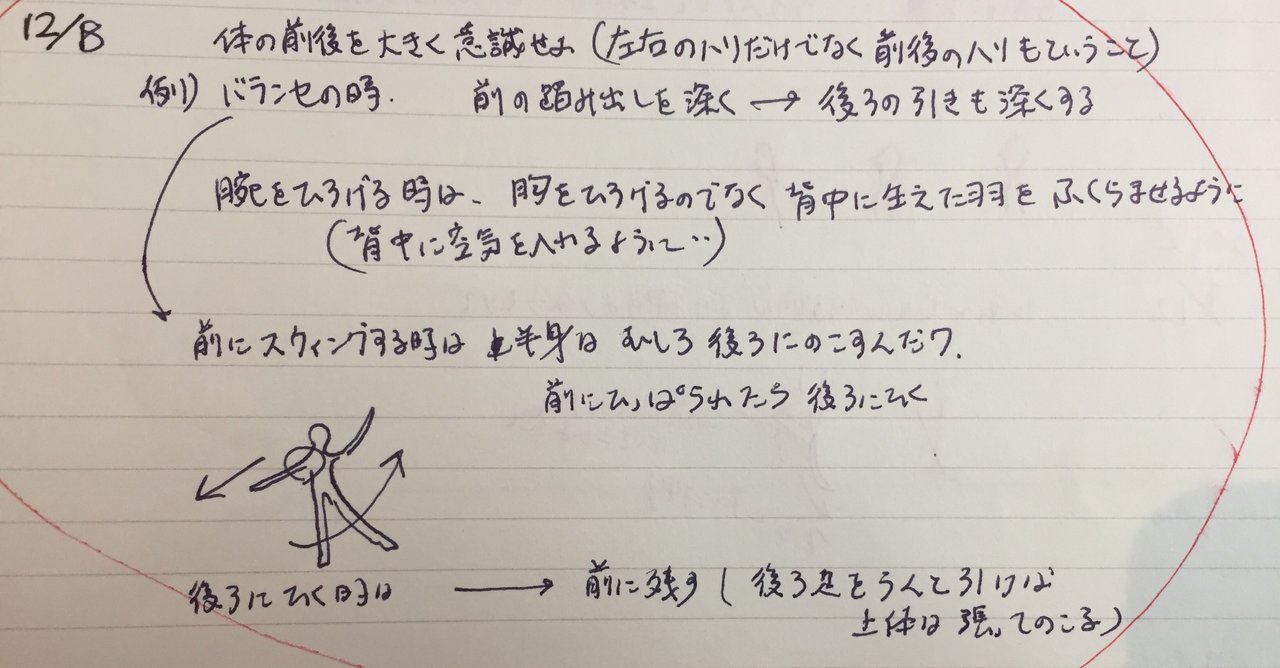 12/8
体の前後を大きく意識せよ(左右のハリだけでなく前後のハリもということ)
例)バランセの時. 前の踏み出しを深く→後ろの引きも深くする
腕をひろげる時は、胸をひろげるのでなく背中に生えた羽をふくらませるように
(背中に空気を入れるように‥)
前にスウィングする時は上半身はむしろ後ろにのこすんだワ.
前にひっぱられたら後ろにひく
後ろにひく時は→前に残す(後ろ足をうんと引けば
上体は張ってのこる)